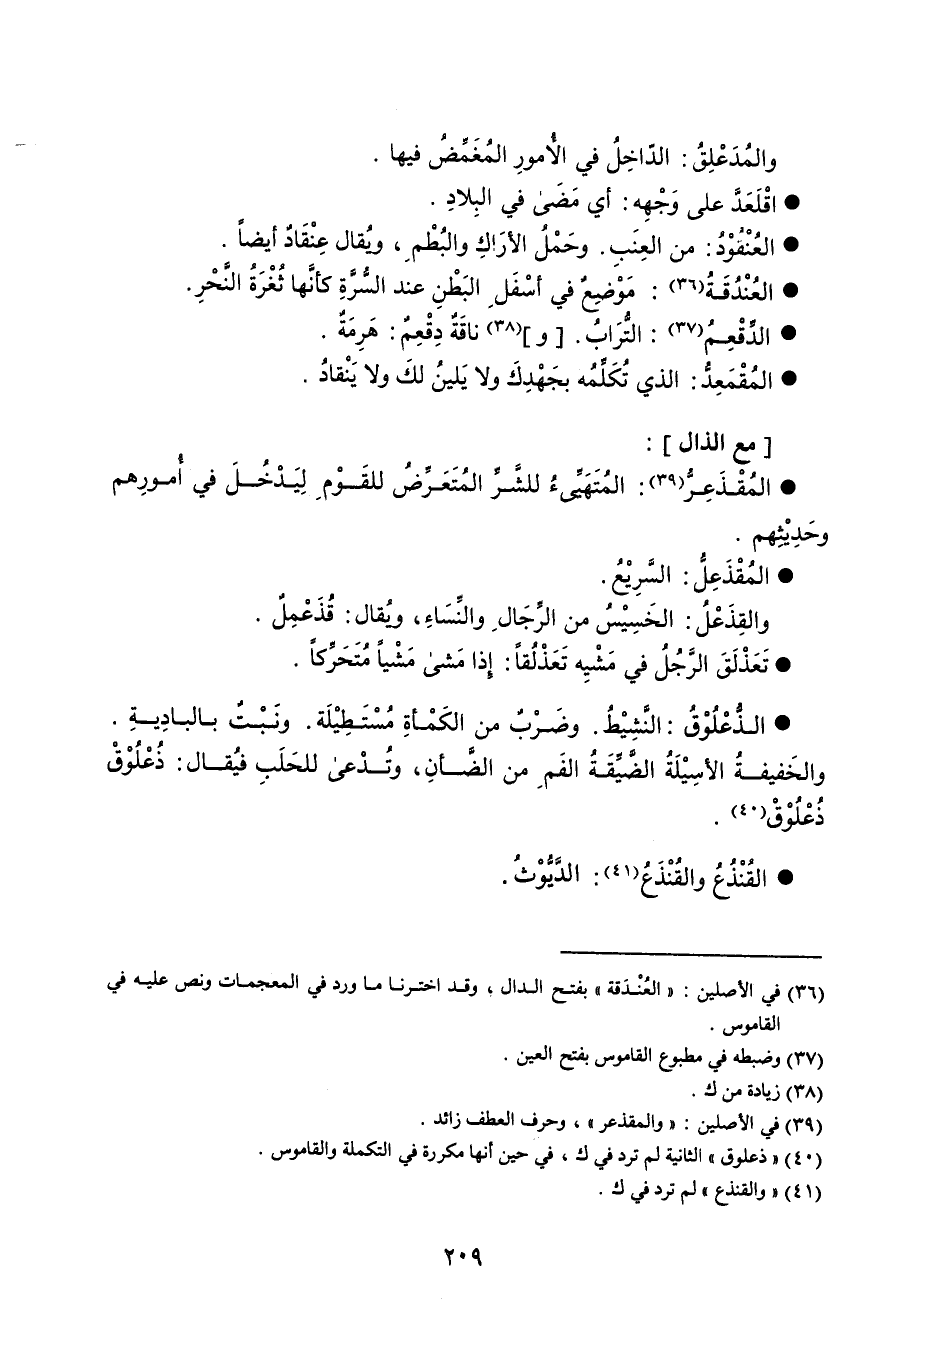 والمُدَعْلِقُ : الدّاخِلُ في الأُمورِ المُغَمِّضُ فيها .
● اقْلَعَدَّ على وَجْهِه : أي مَضَىٰ في البِلادِ .
● العُنْقُوْدُ : من العِنَبِ . وحَمْلُ الأرَاكِ والبُطْمِ ، ويُقال عِنْقَادٌ أيضاً .
● العُنْدُقَـةُ(٣٦) : مَوْضِعٌ في أسْفَلِ البَطْنِ عند السُّرَّةِ كأنَّها ثُغْرَةُ النَّحْرِ .
● الدِّقْعِـمُ(٣٧) : التُّرَابُ . [ و ](٣٨) ناقَةٌ دِقْعِمٌ : هَرِمَةٌ .
● المُقْمَعِدُّ : الذي تُكَلِّمُه بجَهْدِكَ ولا يَلينُ لكَ ولا يَنْقادُ .
[ مع الذال ] :
● المُقْـذَعِـرُّ(٣٩) : المُتَهَيِّىءُ للشَّرِّ المُتَعَـرِّضُ للقَـوْمِ لِيَـدْخُـلَ في أُمـورِهم
وحَدِيْثِهم .
● المُقْذَعِلُّ : السَّرِيْعُ .
والقِذَعْلُ : الخَسِيْسُ من الرِّجَالِ والنِّسَاءِ ، ويُقال : قُذَعْمِلٌ .
● تَعَذْلَقَ الرَّجُلُ في مَشْيِه تَعَذْلُقاً : إذا مَشىٰ مَشْياً مُتَحَرِّكاً .
● الـذُّعْلُوْقُ : النَّشِيْطُ . وضَـرْبٌ من الكَمْـأةِ مُسْتَطِيْلَة . ونَبْـتٌ بـالبـاديـةِ .
والخَفيفـةُ الأسِيْلَةُ الضَّيِّقَـةُ الفَمِ من الضَّـأنِ ، وتُـدْعىٰ للحَلَبِ فيُقـال : ذُعْلُوْقْ
ذُعْلُوْقْ(٤٠) .
● القُنْذُعُ والقُنْذَعُ(٤١) : الدَّيُّوْثُ .
(٣٦) في الأصلين : « العُنْـدَقة » بفتـح الـدال ، وقـد اختـرنـا مـا ورد في المعجمـات ونص عليـه في
القاموس .
(٣٧) وضبطه في مطبوع القاموس بفتح العين .
(٣٨) زيادة من ك .
(٣٩) في الأصلين : « والمقذعر » ، وحرف العطف زائد .
(٤٠) « ذعلوق » الثانية لم ترد في ك ، في حين أنها مكررة في التكملة والقاموس .
(٤١) « والقنذع » لم ترد في ك .
٢٠٩